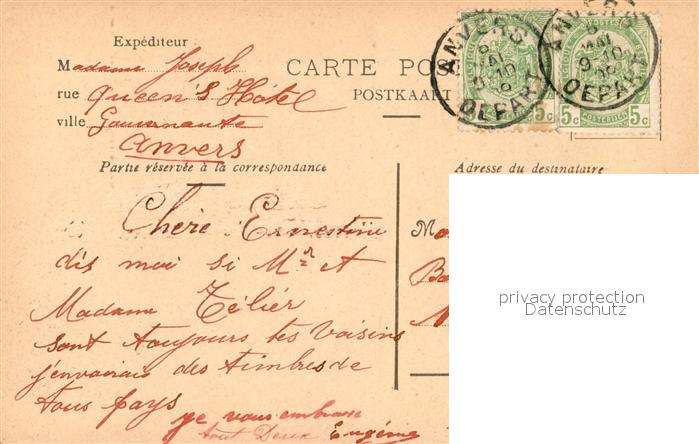 Expéditeur
Madame Joseph
rue Queen's Hôtel
ville Gouvernante
Anvers
CARTE POS
POSTKAART
ANVERS
DEPART
ANVERS
DEPART
5c 5c
5c 5c
Partie réservée à la correspondance
Adresse du destinataire
Chère Ernestine
dis moi si Mr et
Madame Télier
sont toujours tes voisins
j'enverrais des timbres de
tous pays
je vous embrasse
tout Deux Eugénie
M
Ba
privacy protection
Datenschutz